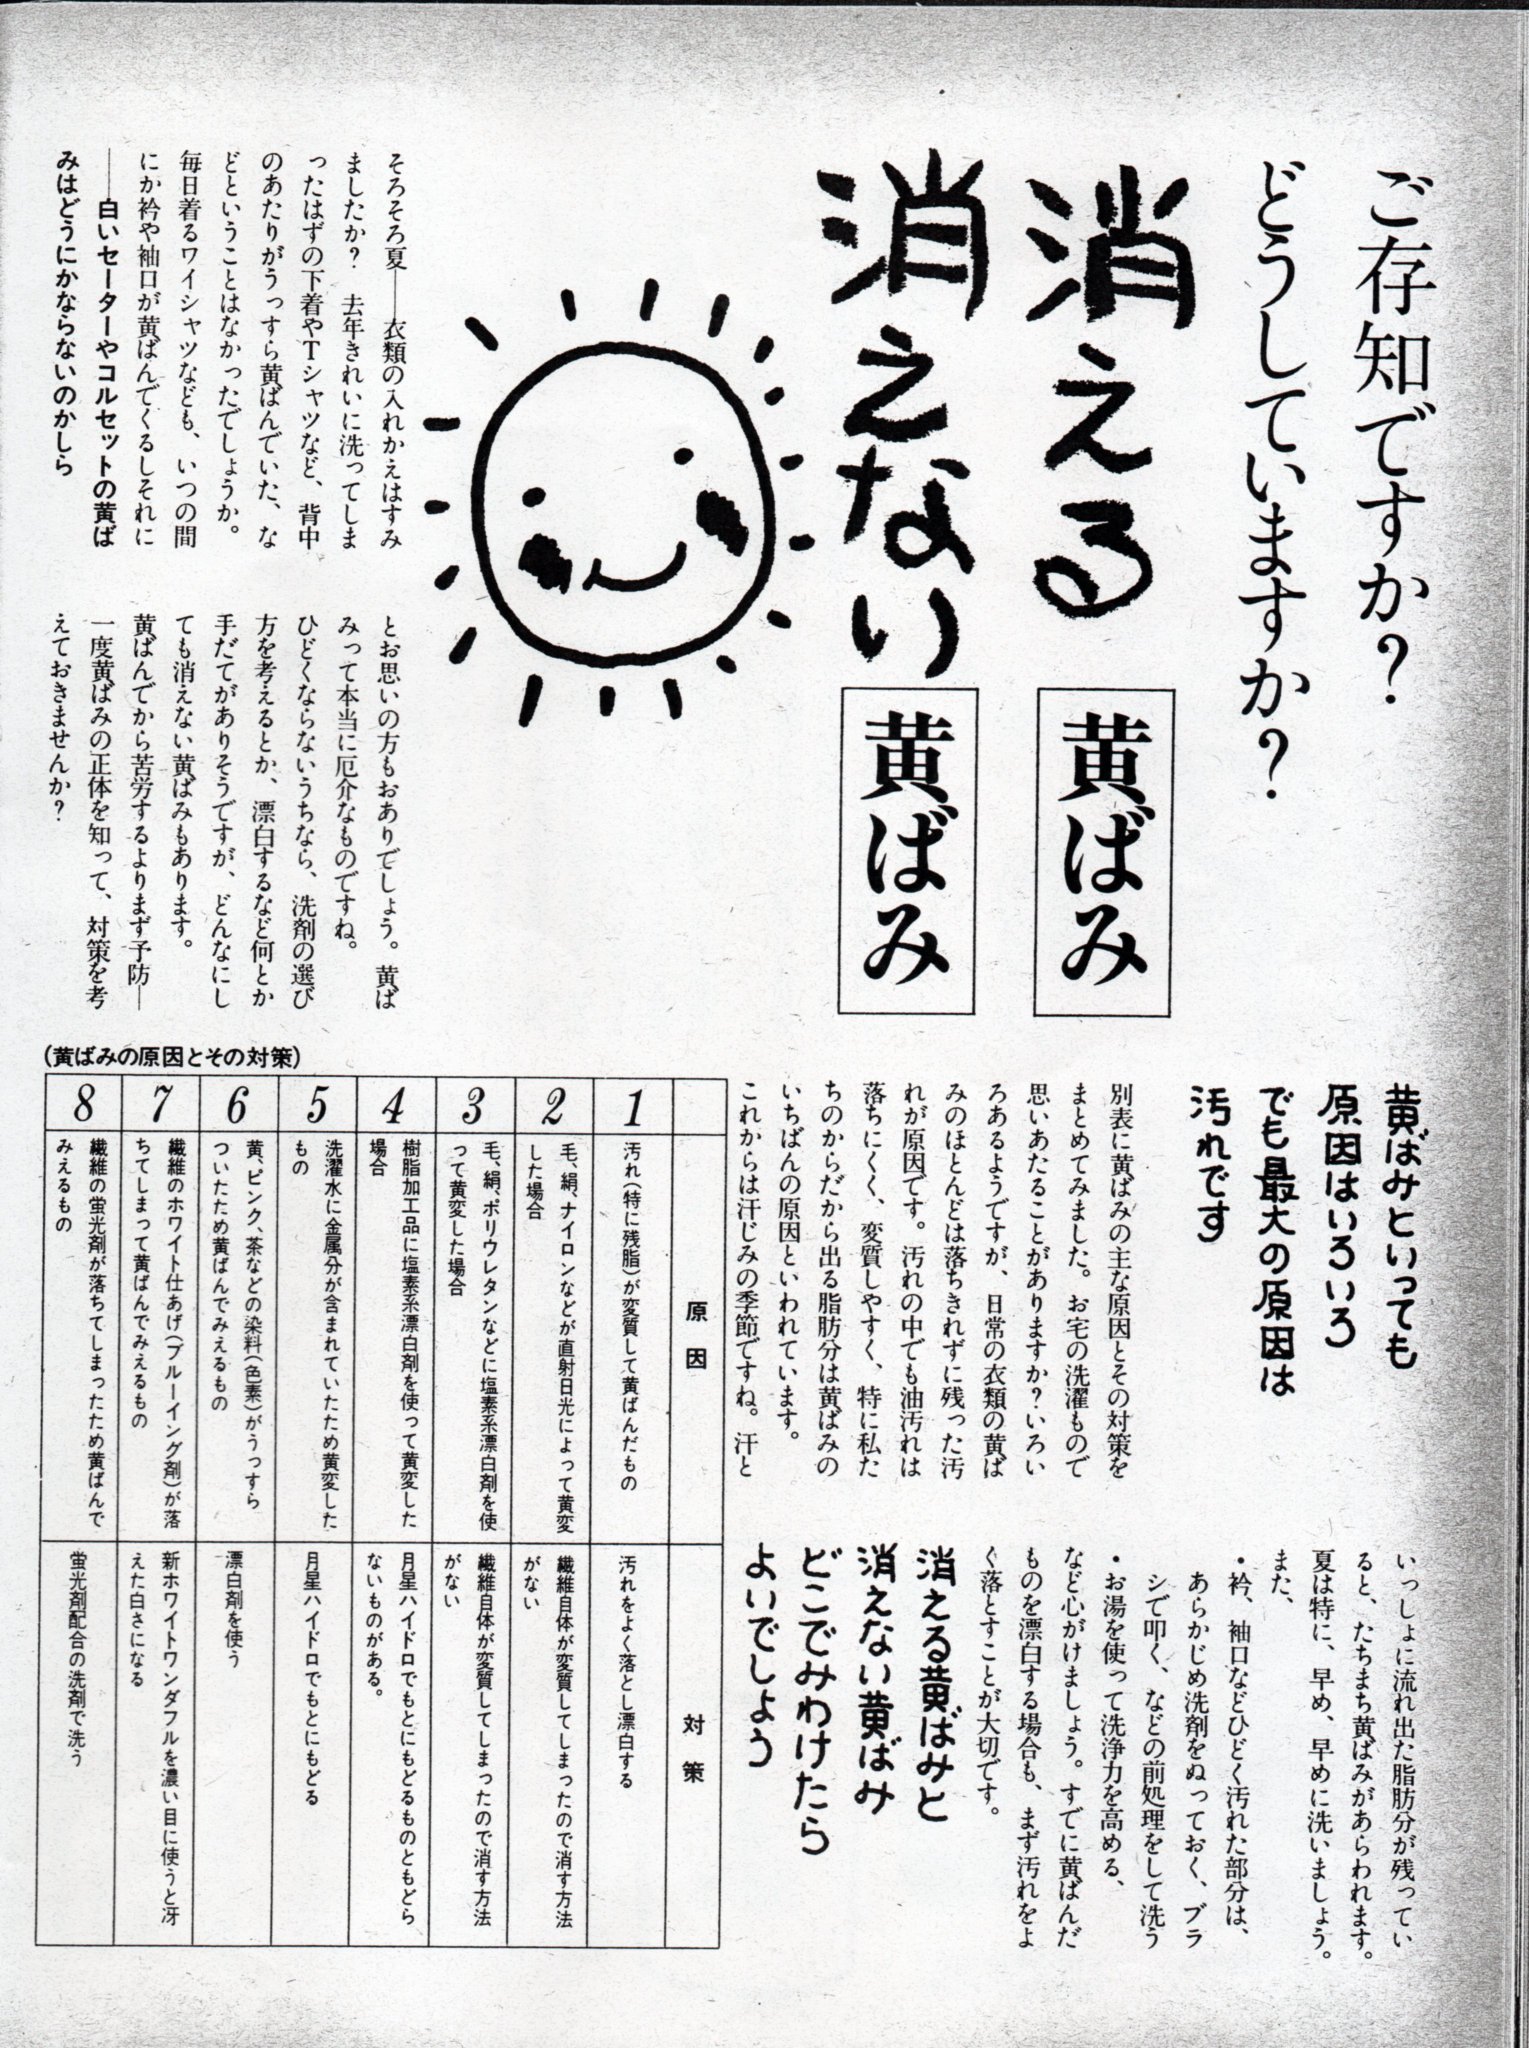 ご存知ですか？
どうしていますか？
消える黄ばみ
消えない黄ばみ
そろそろ夏――衣類の入れかえはすみ
ましたか？　去年きれいに洗ってしま
ったはずの下着やTシャツなど、背中
のあたりがうっすら黄ばんでいた、な
どということはなかったでしょうか。
毎日着るワイシャツなども、いつの間
にか衿や袖口が黄ばんでくるしそれに
――白いセーターやコルセットの黄ば
みはどうにかならないのかしら
とお思いの方もおありでしょう。黄ば
みって本当に厄介なものですね。
ひどくならないうちなら、洗剤の選び
方を考えるとか、漂白するなど何とか
手だてがありそうですが、どんなにし
ても消えない黄ばみもあります。
黄ばんでから苦労するよりまず予防―
一度黄ばみの正体を知って、対策を考
えておきませんか？
黄ばみといっても
原因はいろいろ
でも最大の原因は
汚れです
別表に黄ばみの主な原因とその対策を
まとめてみました。お宅の洗濯もので
思いあたることがありますか？いろい
ろあるようですが、日常の衣類の黄ば
みのほとんどは落ちきれずに残った汚
れが原因です。汚れの中でも油汚れは
落ちにくく、変質しやすく、特に私た
ちのからだから出る脂肪分は黄ばみの
いちばんの原因といわれています。
これからは汗じみの季節ですね。汗と
いっしょに流れ出た脂肪分が残ってい
ると、たちまち黄ばみがあらわれます。
夏は特に、早め、早めに洗いましょう。
また、
・衿、袖口などひどく汚れた部分は、
あらかじめ洗剤をぬっておく、ブラ
シで叩く、などの前処理をして洗う
・お湯を使って洗浄力を高める、
など心がけましょう。すでに黄ばんだ
ものを漂白する場合も、まず汚れをよ
く落とすことが大切です。
消える黄ばみと
消えない黄ばみ
どこでみわけたら
よいでしょう
(黄ばみの原因とその対策)
原因
対策
1
汚れ(特に残脂)が変質して黄ばんだもの
汚れをよく落とし漂白する
2
毛、絹、ナイロンなどが直射日光によって黄変
した場合
繊維自体が変質してしまったので消す方法
がない
3
毛、絹、ポリウレタンなどに塩素系漂白剤を使
って黄変した場合
繊維自体が変質してしまったので消す方法
がない
4
樹脂加工品に塩素系漂白剤を使って黄変した
場合
月星ハイドロでもとにもどるものともどら
ないものがある。
5
洗濯水に金属分が含まれていたため黄変した
もの
月星ハイドロでもとにもどる
6
黄、ピンク、茶などの染料(色素)がうっすら
ついたため黄ばんでみえるもの
漂白剤を使う
7
繊維のホワイト仕あげ(ブルーイング剤)が落
ちてしまって黄ばんでみえるもの
新ホワイトワンダフルを濃い目に使うと冴
えた白さになる
8
繊維の蛍光剤が落ちてしまったため黄ばんで
みえるもの
蛍光剤配合の洗剤で洗う